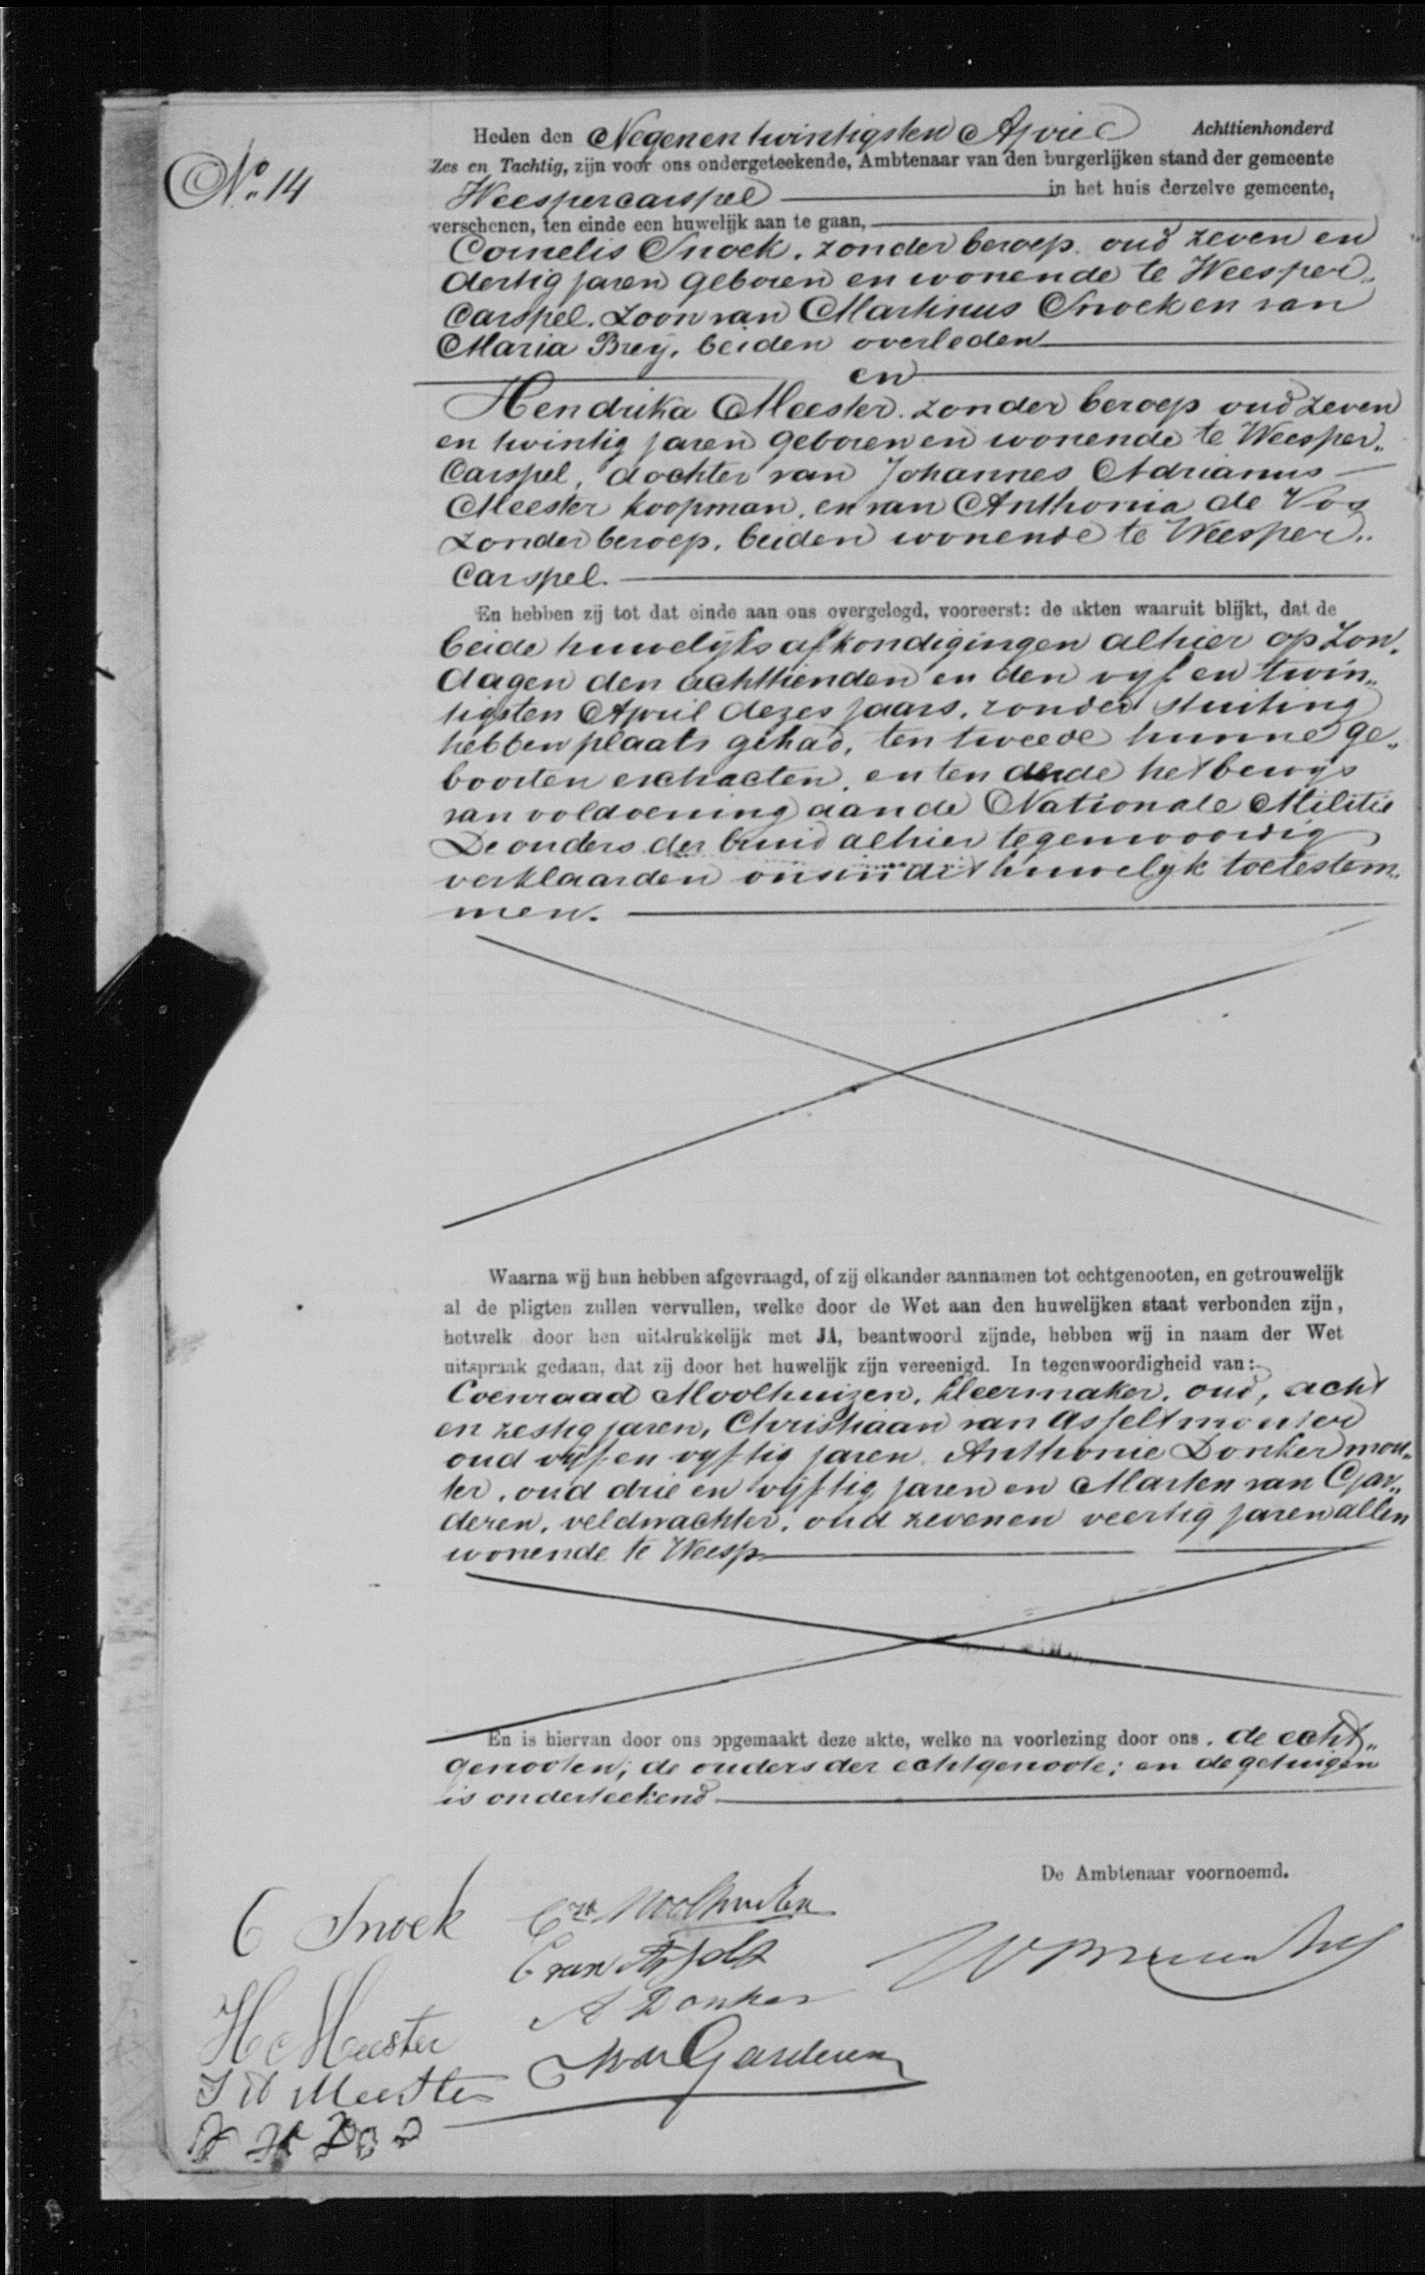 No. 14
Heden den Negenentwintigsten April Achttienhonderd
Zes en Tachtig, zijn voor ons ondergeteekende, Ambtenaar van den burgerlijken stand der gemeente
Weespercarspel in het huis derzelve gemeente,
verschenen, ten einde een huwelijk aan te gaan,
Cornelis Snoek, zonder beroep, oud zeven en
dertig jaren geboren en wonende te Weesper„
Carspel. Zoon van Martinus Snoek en van
Maria Brey, beiden overleden
en
Hendrika Meester. zonder beroep oud zeven
en twintig jaren geboren en wonende te Weesper„
Carspel, dochter van Johannes Adrianus
Meester koopman, en van Anthonia de Vos
zonder beroep, beiden wonende te Weesper„
Carspel.
En hebben zij tot dat einde aan ons overgelegd, vooreerst: de akten waaruit blijkt, dat de
beide huwelijks afkondigingen alhier op Zon„
dagen den achttienden en den vyf en twin„
tigsten April dezes jaars, zonder stuiting
hebben plaats gehad, ten tweede hunne ge„
boorten extracten, en ten derde het bewys
van voldoening aan de Nationale Militie
De ouders der bruid alhier tegenwoordig
verklaarden in dit huwelyk toetestem„
men.
Waarna wij hun hebben afgevraagd, of zij elkander aannamen tot echtgenooten, en getrouwelijk
al de pligten zullen vervullen, welke door de Wet aan den huwelijken staat verbonden zijn,
hetwelk door hen uitdrukkelijk met JA, beantwoord zijnde, hebben wij in naam der Wet
uitspraak gedaan, dat zij door het huwelijk zijn vereenigd. In tegenwoordigheid van:
Coenraad Moolhuizen, kleermaker, oud, acht
en zestig jaren, Christiaan van Asfelt mouter
oud vijf en vyftig jaren. Anthonie Donker mou„
ter, oud drie en vijftig jaren en Marten van Gar„
deren, veldwachter, oud zeven en veertig jaren allen
wonende te Weesp
En is hiervan door ons opgemaakt deze akte, welke na voorlezing door ons, de echt„
genooten; de ouders der echtgenoote; en de getuigen
is onderteekend
De Ambtenaar voornoemd.
C Snoek
H Meester
J A Meester
Moolhuizen
C van Asfelt
A Donker
M van Garderen